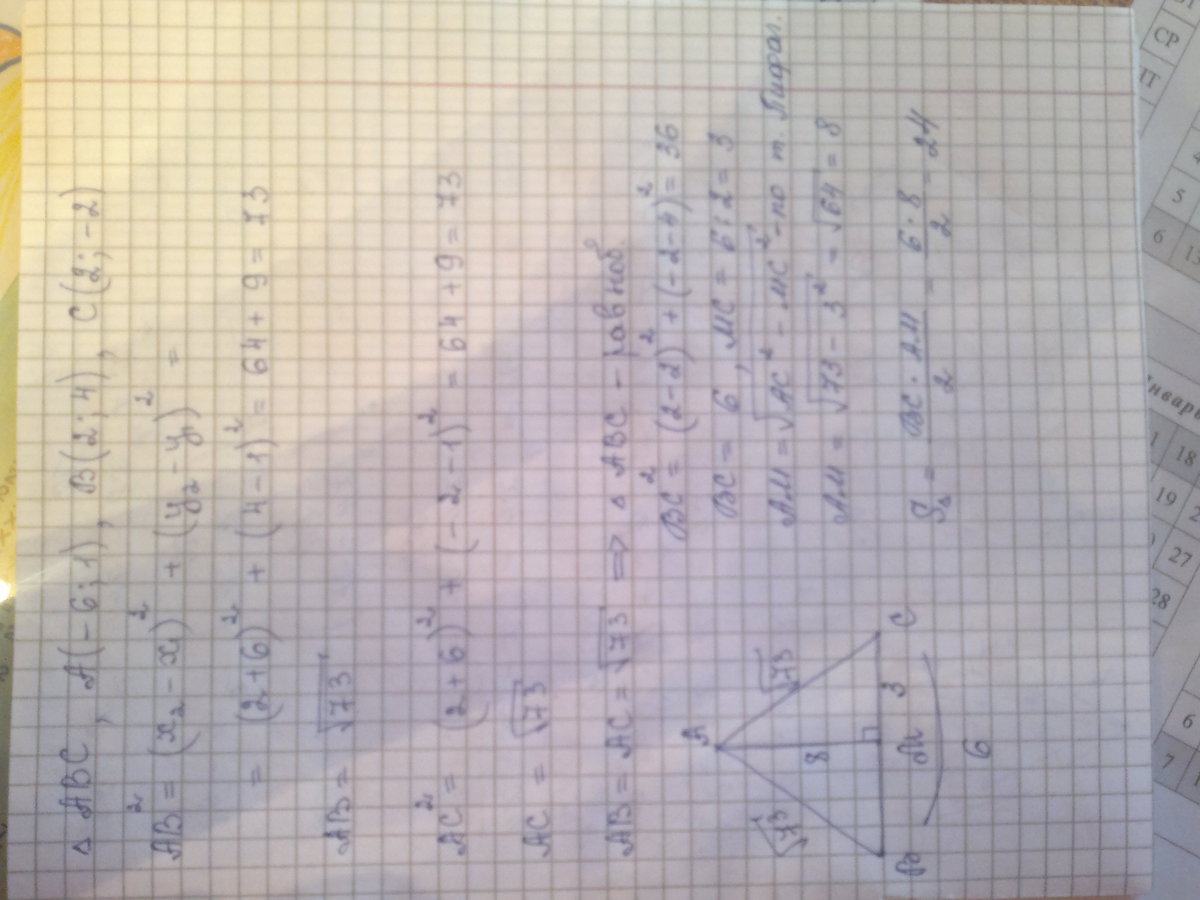 △ ABC, A(-6; 1), B(2; 4), C(2; -2)
AB² = (x₂ - x)² + (y₂ - y₁)² =
= (2+6)² + (4-1)² = 64 + 9 = 73
AB = √73
AC² = (2+6)² + (-2-1)² = 64 + 9 = 73
AC = √73
AB = AC = √73 ⇒ △ ABC - равноб.
BC² = (2-2)² + (-2-4)² = 36
BC = 6, MC = 6:2 = 3
AM = √AC² - MC² - по т. Пифаг.
AM = √73 - 3² = √64 = 8
S△ = BC · AM / 2 = 6 · 8 / 2 = 24
A
√73
√73
8
B
M
3
C
6
СР
5
6
13
Январ
1
18
19
2
27
28
6
7